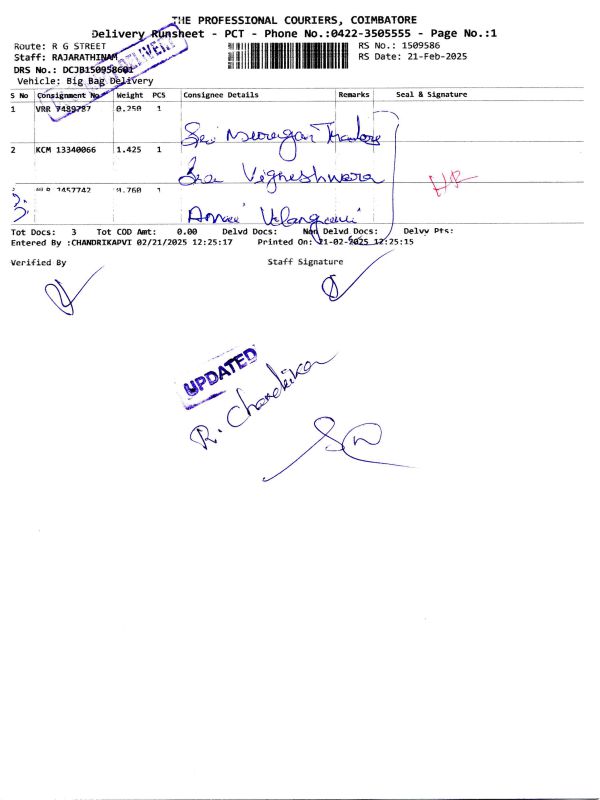 THE PROFESSIONAL COURIERS, COIMBATORE
Delivery Runsheet - PCT - Phone No.:0422-3505555 - Page No.:1
Route: R G STREET
RS No.: 1509586
Staff: RAJARATHINAM
RS Date: 21-Feb-2025
DRS No.: DCJB150958601
Vehicle: Big Bag Delivery
DELIVERY
S No Consignment No Weight PCS Consignee Details Remarks Seal & Signature
1 VRR 7489787 0.250 1
Sri Murugan Traders
2 KCM 13340066 1.425 1
Sree Vigneshwara
3 7457742 1
Annai Velanganni
Tot Docs: 3 Tot COD Amt: 0.00 Delvd Docs: Non Delvd Docs: Delvy Pts:
Entered By :CHANDRIKAPVI 02/21/2025 12:25:17 Printed On: 21-02-2025 12:25:15
Verified By Staff Signature
UPDATED
R. Chandrika